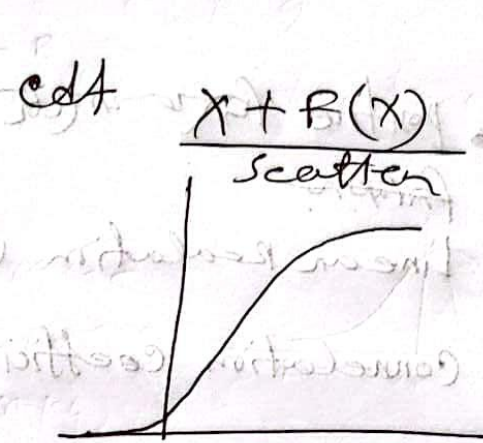 cdf
X + F(X)
scatter